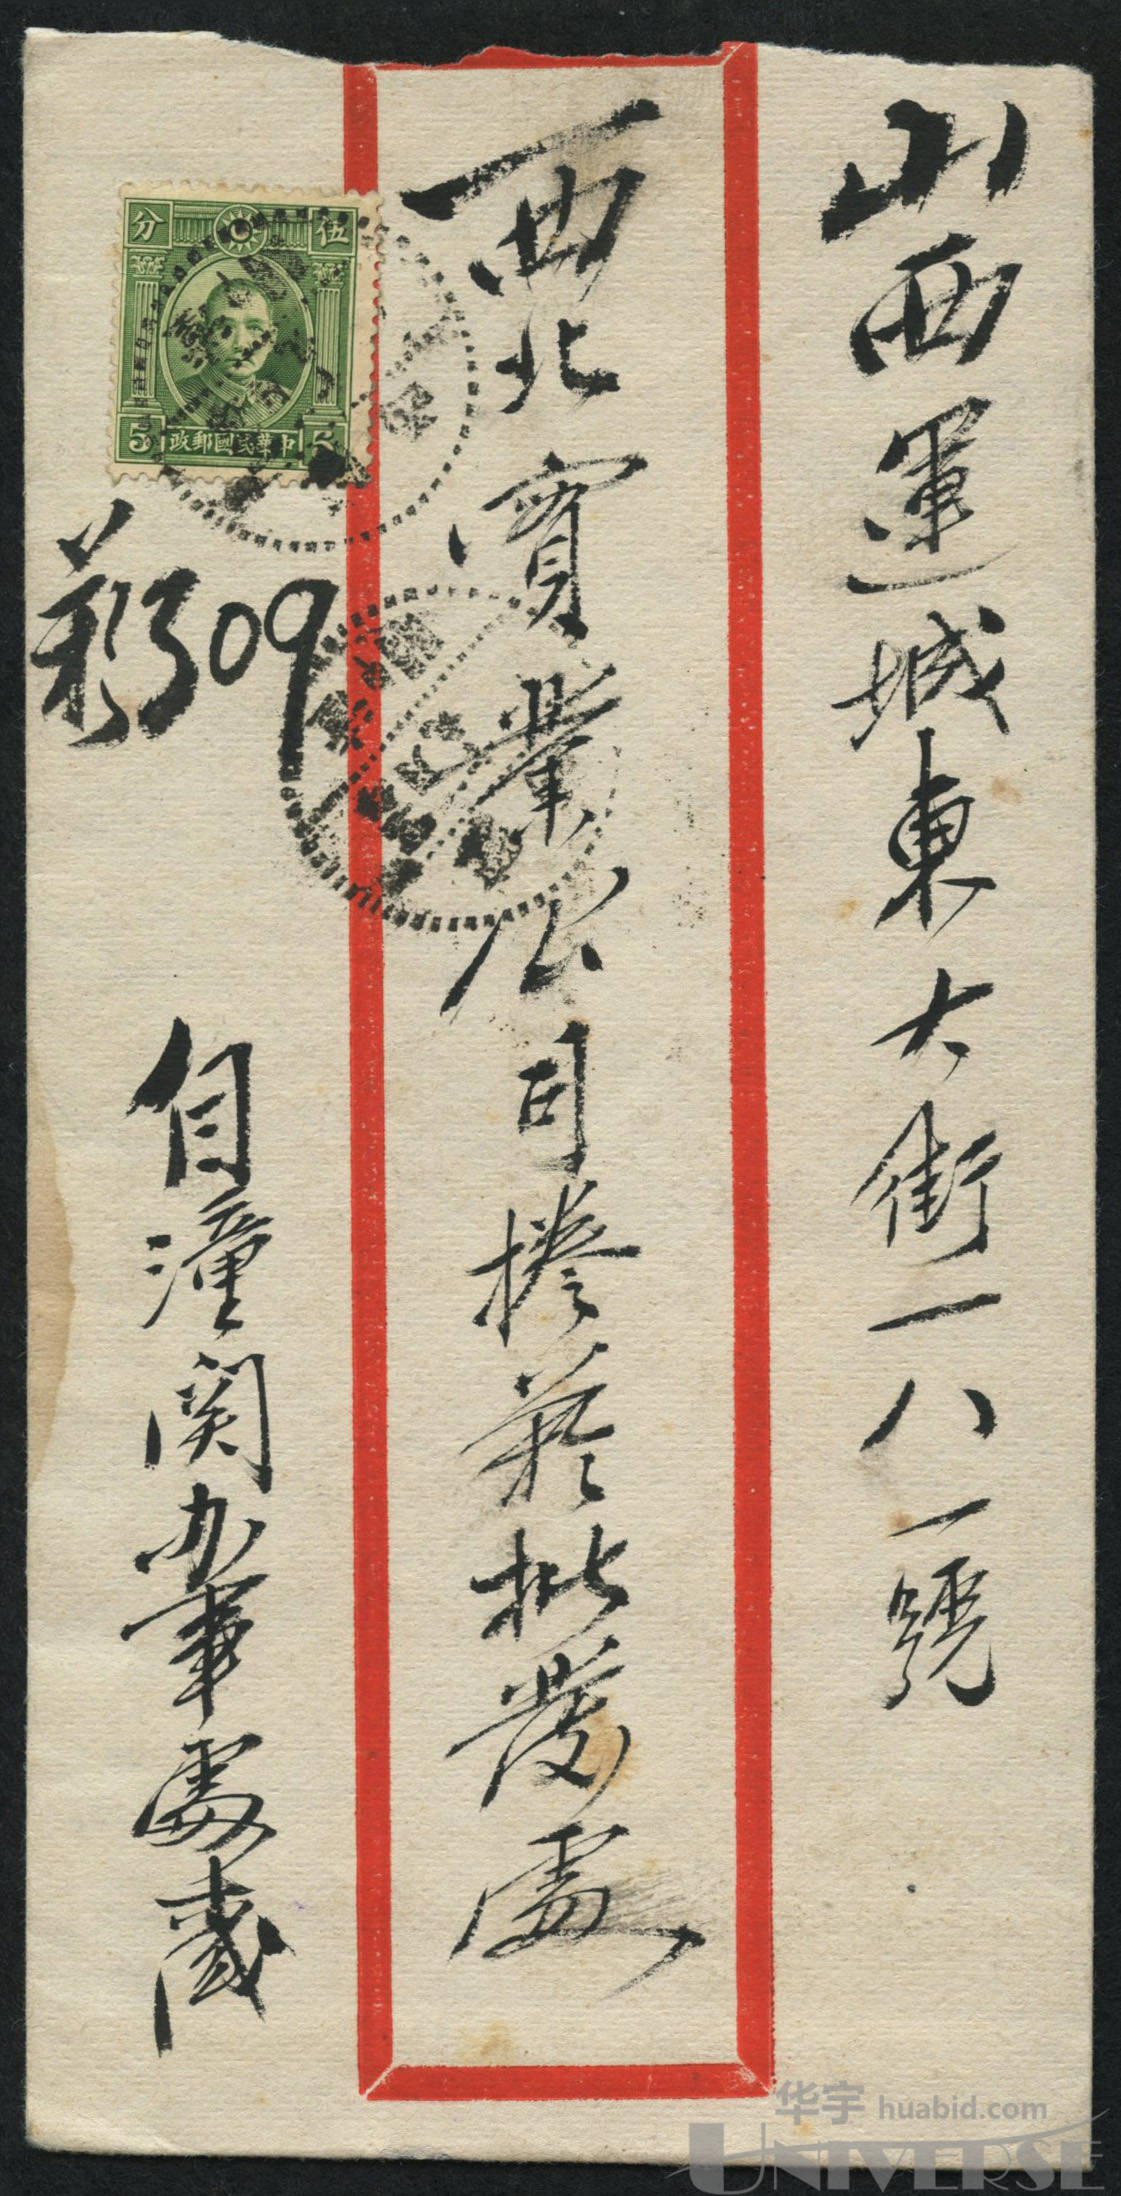 山西運城東大街一八一號
西北實業公司捲菸批發處
自潼関办事處緘
309
伍
分
5
5
中華民國郵政
华宇 huabid.com
UNIVERSE